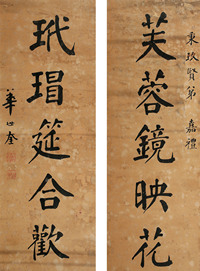 秉玖賢弟 嘉禮
芙蓉鏡映花
玳瑁筵合歡
華世奎